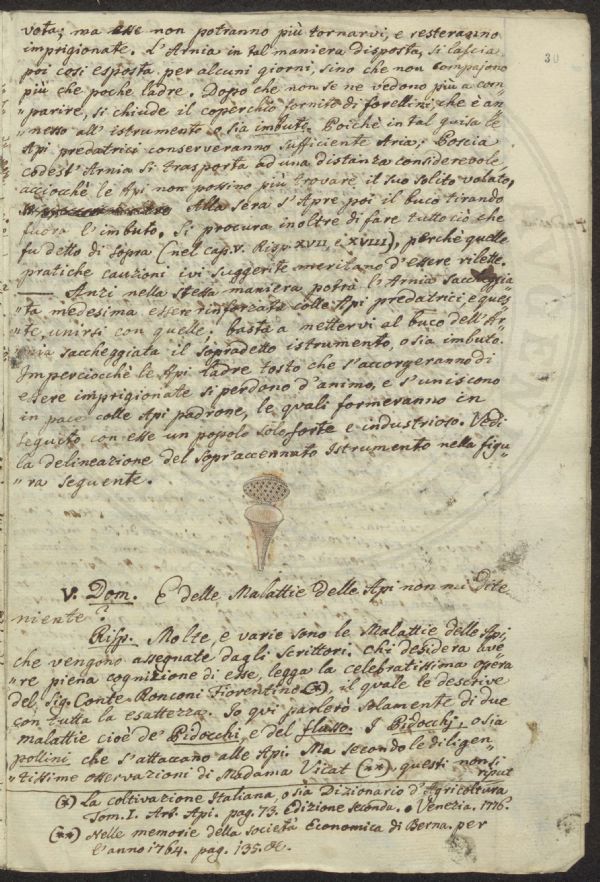 vota; ma esse non potranno più tornarvi, e resteranno
imprigionate. L'Arnia in tal maniera disposta, si lascia
poi così esposta per alcuni giorni, sino che non compajono
più che poche ladre. Dopo che non se ne vedono più a com-
"parire, si chiude il coperchio fornito di forellini che è an-
"nesso all'istrumento o sia imbuto. Poichè in tal guisa le
Api predatrici conserveranno sufficiente Aria; Poscia
codest'Arnia si trasporta ad una distanza considerevole
acciocchè le Api non possino più trovare il suo solito volato,
Alla sera s'Apre poi il buco tirando
fuora l'imbuto. Si procura inoltre di fare tutto ciò che
fu detto di sopra (nel cap. V. Risp. XVII, e XVIII), perchè quelle
pratiche cauzioni ivi suggerite meritano d'essere rilette.
Anzi nella stessa maniera potrà l'Arnia saccheggia
"ta medesima essere rinforzata colle Api predatrici, e ques
"te, unirsi con quelle; basta a mettervi al buco dell'Ar-
"nia saccheggiata il sopradetto istrumento, o sia imbuto.
Imperciocchè le Api ladre tosto che s'accorgeranno di
essere imprigionate si perdono d'animo, e s'uniscono
in pace colle Api padrone, le quali formeranno in
seguito con esse un popolo sole forte e industrioso. Vedi
la delineazione del sopr'accennato Istrumento nella figu-
"ra seguente.
30
V. Dom. E delle Malattie delle Api non mi dite
niente?
Risp. Molte, e varie sono le Malattie delle Api,
che vengono assegnate dagli Scrittori. chi desidera ave
"re piena cognizione di esse, legga la celebratissima opera
del Sig. Conte Ronconi Fiorentino (*), il quale le descrive
con tutta la esattezza. Io qui parlerò solamente di due
malattie cioè de' Pidocchi, e del flusso. I Pidocchj, o sia
pollini, che s'attaccano alle Api. Ma secondo le diligen-
"tissime osservazioni di Madama Vicat (**), questi non si
(*) La coltivazione Italiana, o sia Dizionario d'Agricoltura
Tom. I. Art. Api. pag. 73. Edizione seconda. o Venezia. 1776.
(**) Nelle memorie della società Economica di Berna. per
l'anno 1764. pag. 135. &c.